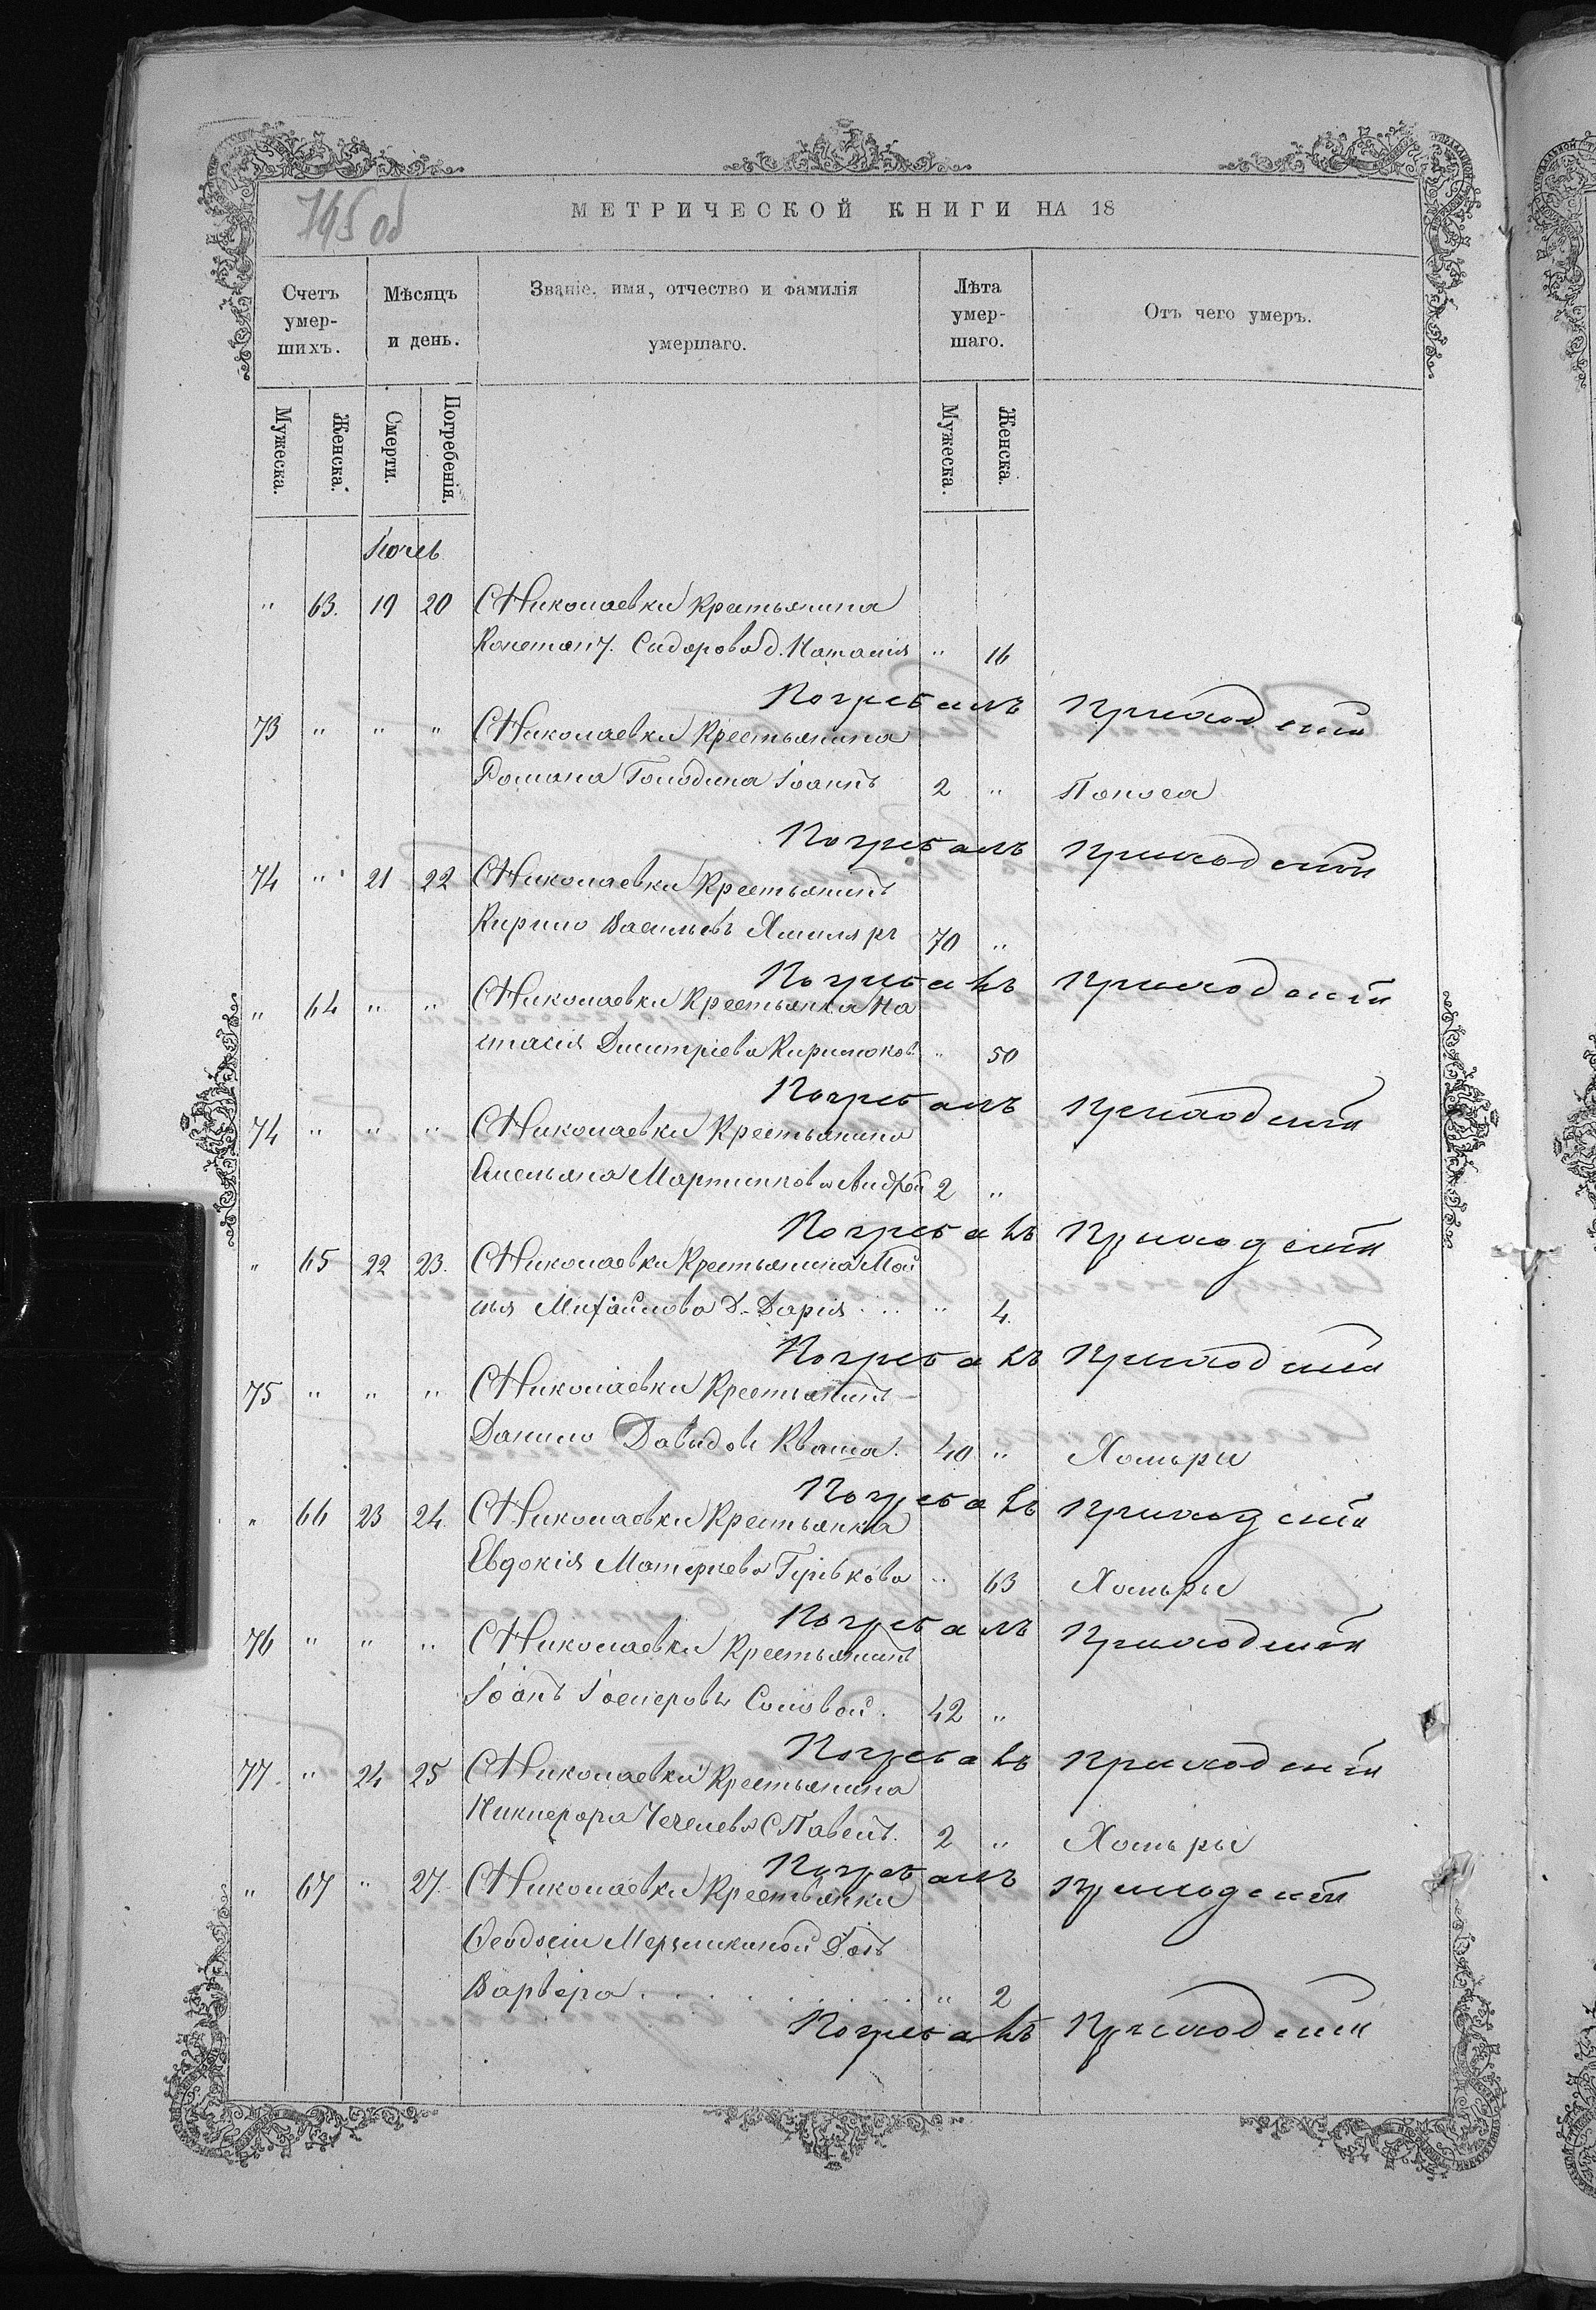 745 об
МЕТРИЧЕСКОЙ КНИГИ НА 18
Счетъ умер-шихъ. Мѣсяцъ и день. Званіе, имя, отчество и фамилія умершаго. Лѣта умер-шаго. Отъ чего умеръ.
Мужеска. Женска. Смерти. Погребенія. Мужеска. Женска.
Іюль
" 63. 19 20 С Николаевки Крестьянина
Констант. Сидорова д. Наталія " 16
Погребалъ Приходскій
73 " " " С Николаевки Крестьянина
Романа Голодина Іоаннъ 2 " Поноса
Погребалъ Приходской
74 " 21 22 С Николаевки Крестьянинъ
Кирило Васильевъ 70 "
Погребанъ Приходскій
" 64 " " С Николаевки Крестьянка На
стасія Дмитріева " 50
Погребалъ Приходскій
74 " " " С Николаевки Крестьянина
Емельяна Мартинкова Андрей 2 "
Погребанъ Приходскій
" 65 22 23. С Николаевки Крестьянина Мой
сея Михайлова Д. Дарія " 4.
Погребанъ Приходскій
75 " " " С Николаевки Крестьянинъ
Данило Давидовъ Кваша. 40 " Холеры
Погребанъ Приходскій
" 66 23 24. С Николаевки Крестьянка
Евдокія Матвеева Гуркова " 63 Холеры
Погребалъ Приходской
76 " " " С Николаевки Крестьянинъ
Іоанъ Соловей. 42 "
Погребанъ Приходскій
77. " 24 25 С Николаевки Крестьянина
Никифора С. Павелъ. 2 " Холеры
Погребалъ Приходскій
" 67 " 27. С Николаевки Крестьянки
Феодосіи Дочь
Варвара . . . . . . . " 2
Погребанъ Приходскій